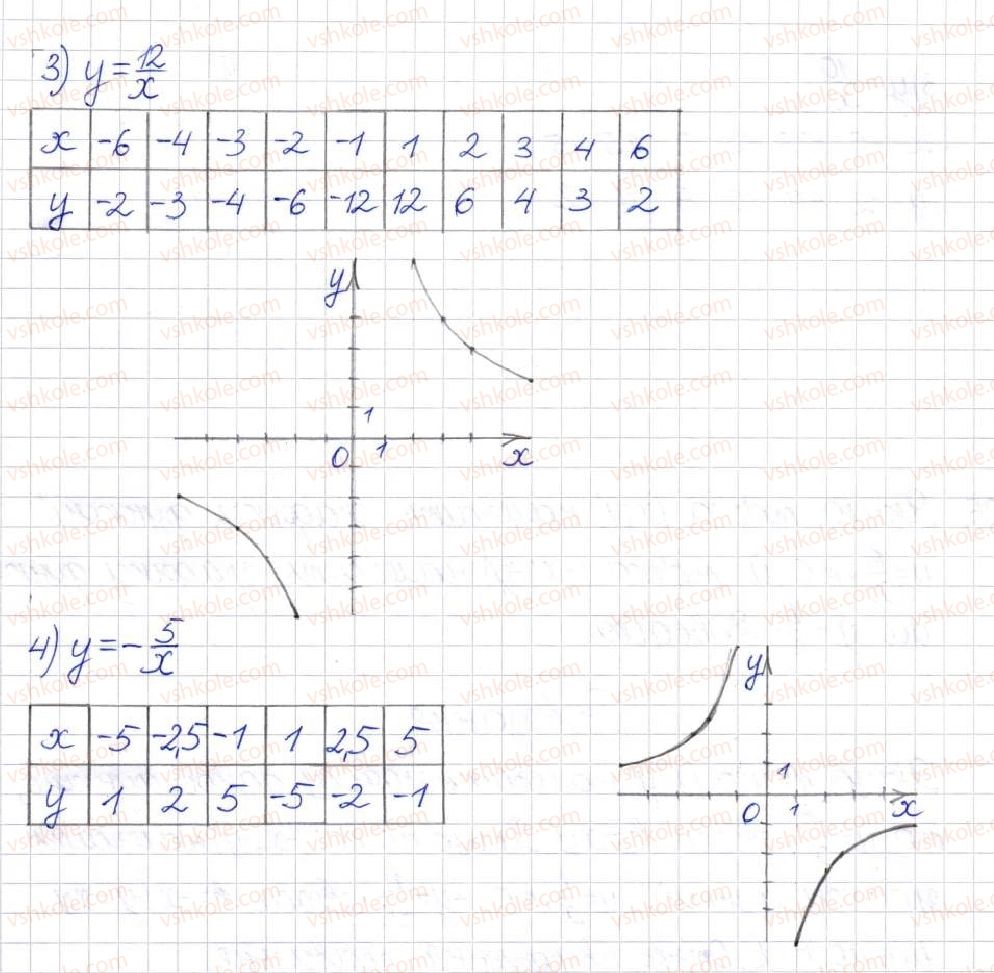 3) y = 12/x
x -6 -4 -3 -2 -1 1 2 3 4 6
y -2 -3 -4 -6 -12 12 6 4 3 2
y
1
0 1 x
4) y = - 5/x
x -5 -2,5 -1 1 2,5 5
y 1 2 5 -5 -2 -1
y
1
0 1 x
vshkole.com